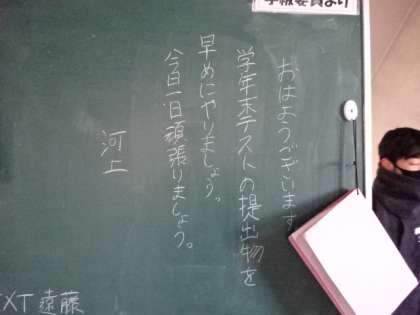 学級委員より
おはようございます
学年末テストの提出物を
早めにやりましょう。
今日一日頑張りましょう。
河上
EXT 遠藤